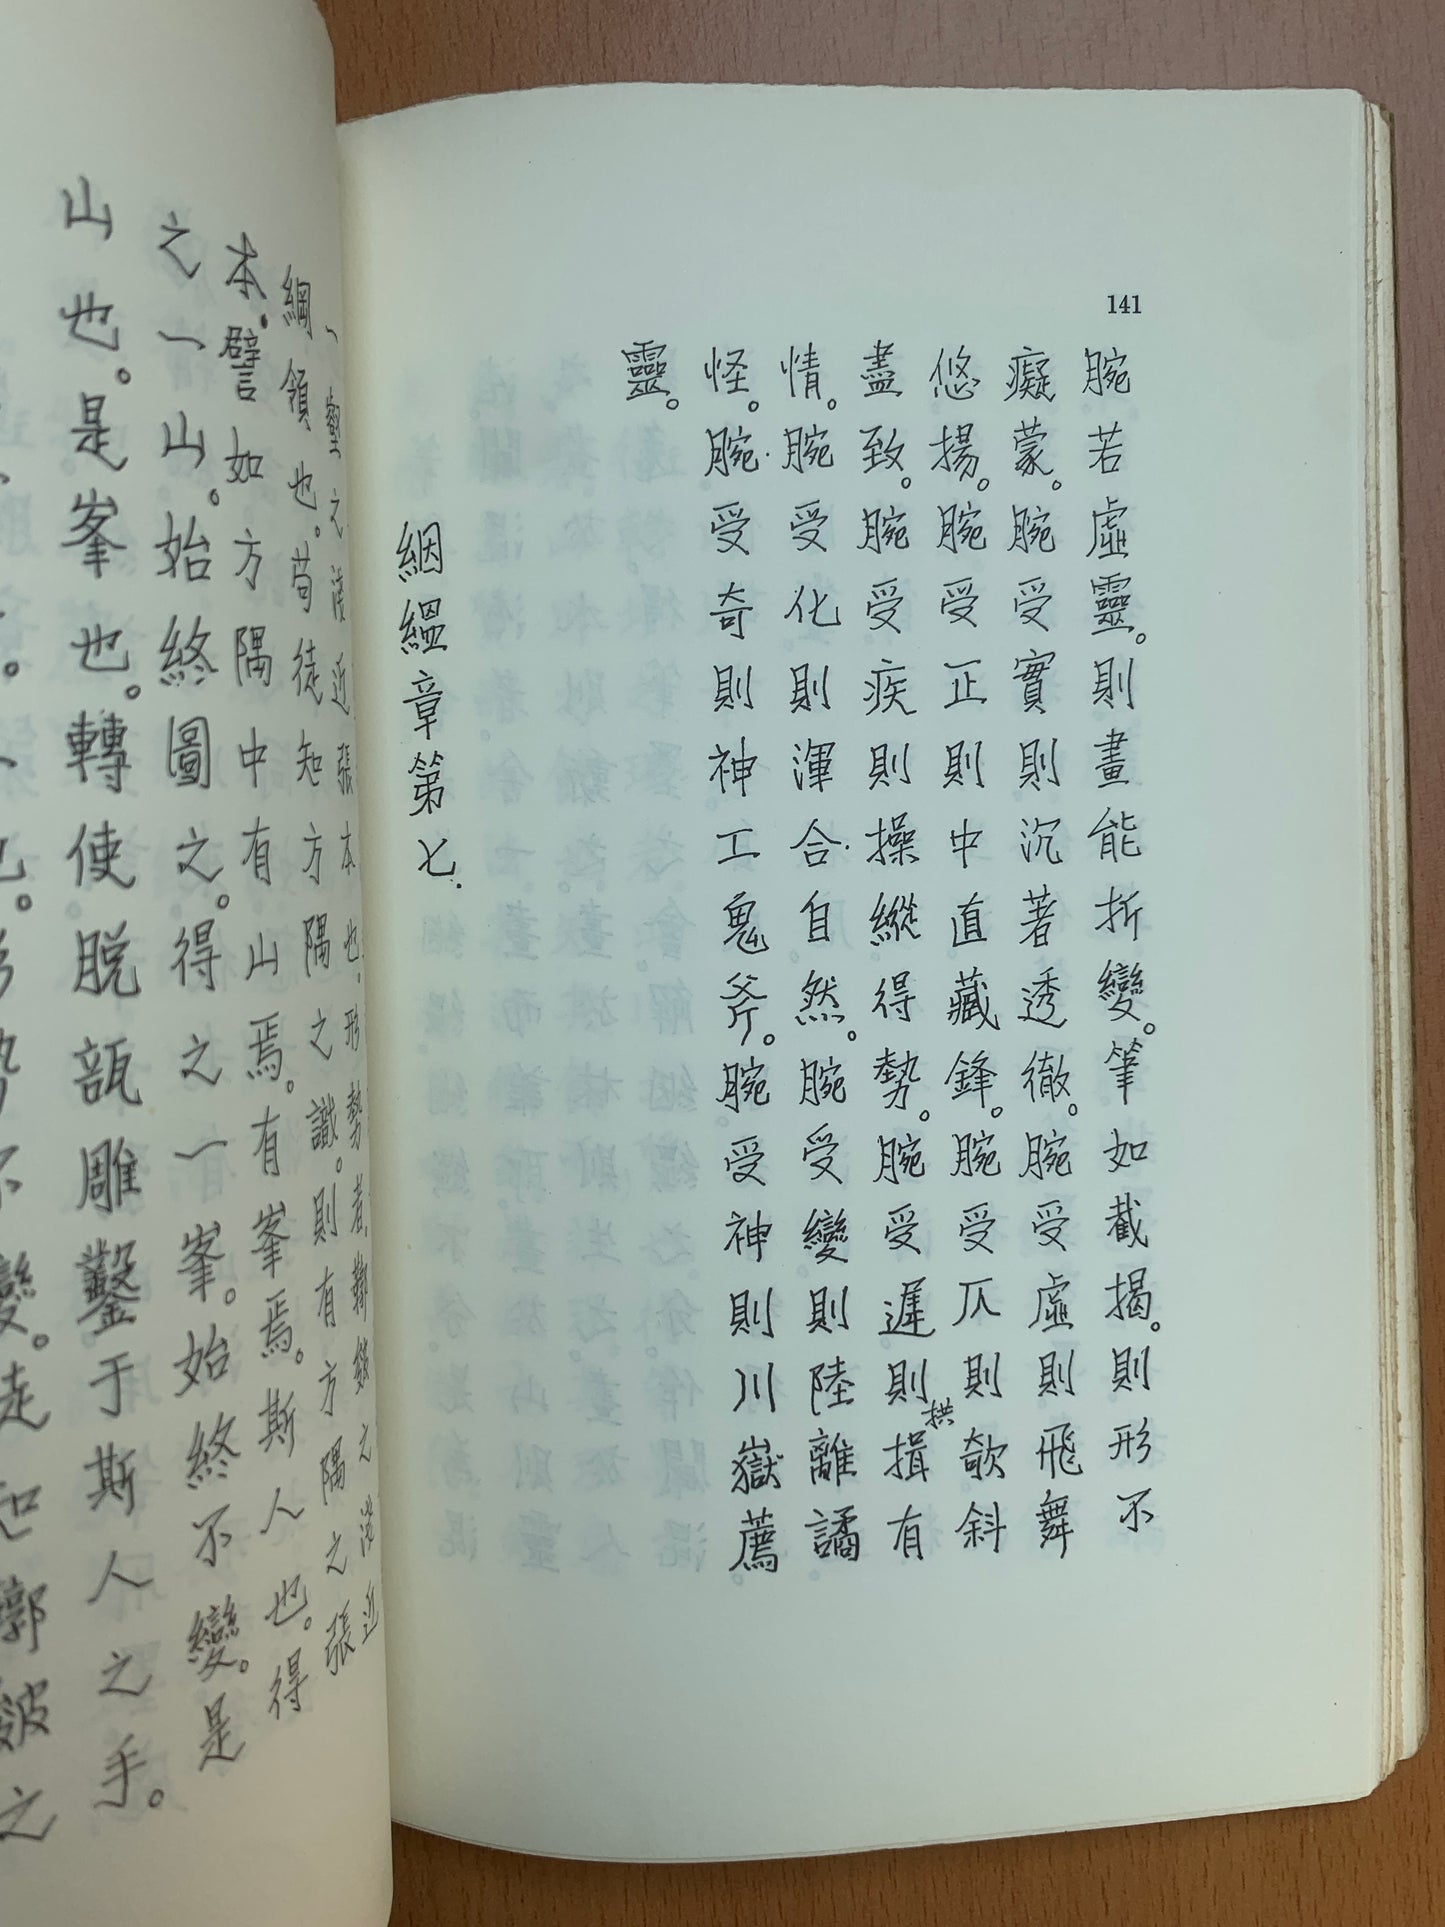 141
腕若虛靈。則畫能折變。筆如截揭。則形不
癡蒙。腕受實則沉著透徹。腕受虛則飛舞
悠揚。腕受正則中直藏鋒。腕受仄則欹斜
盡致。腕受疾則操縱得勢。腕受遲則拱揖有
情。腕受化則渾合自然。腕受變則陸離譎
怪。腕受奇則神工鬼斧。腕受神則川嶽薦
靈。
絪縕章第七.
一壑之淺近張本也。形勢者皴之淺近
綱領也。苟徒知方隅之識。則有方隅之張
本。譬如方隅中有山焉。有峯焉。斯人也。得
之一山。始終圖之。得之一峯。始終不變。是
山也。是峯也。轉使脫瓿雕鑿于斯人之手。
也。形勢不變。徒知皴之